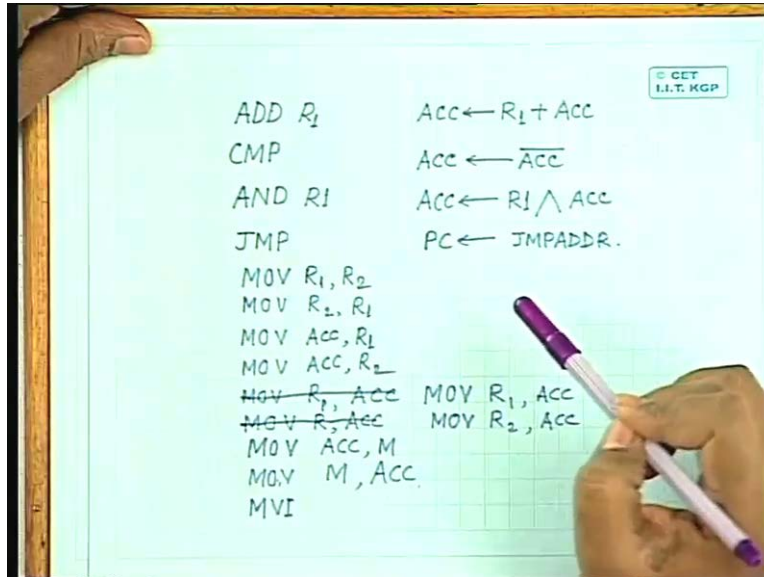 © CET
I.I.T. KGP
ADD R1 ACC ← R1 + ACC
CMP ACC ← A̅C̅C̅
AND R1 ACC ← R1 ∧ ACC
JMP PC ← JMPADDR.
MOV R1, R2
MOV R2, R1
MOV ACC, R1
MOV ACC, R2
MOV R1, ACC MOV R1, ACC
MOV R, ACC MOV R2, ACC
MOV ACC, M
MOV M, ACC
MVI